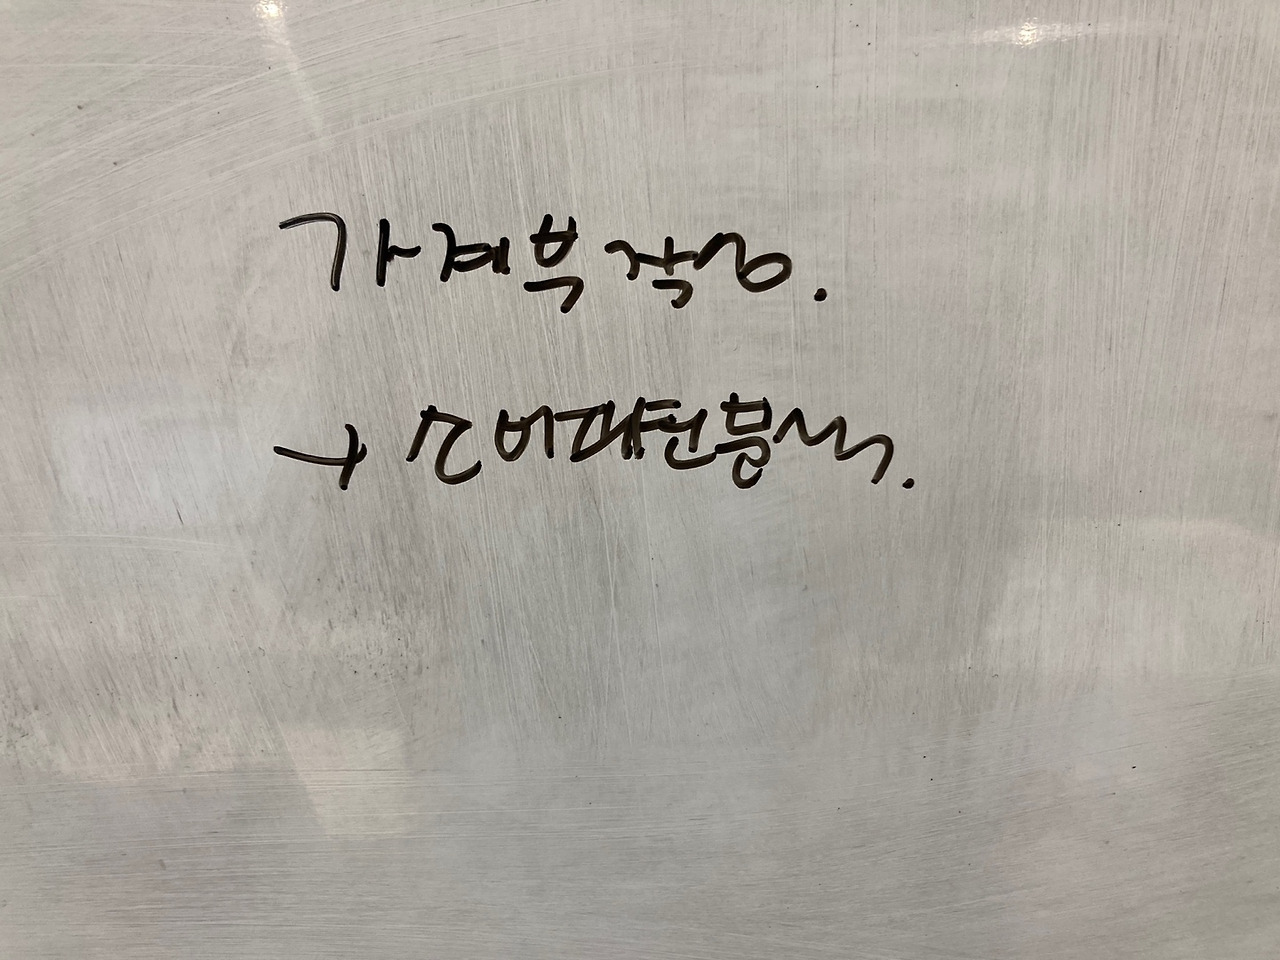 가계부 작성.
→ 소비패턴 분석.